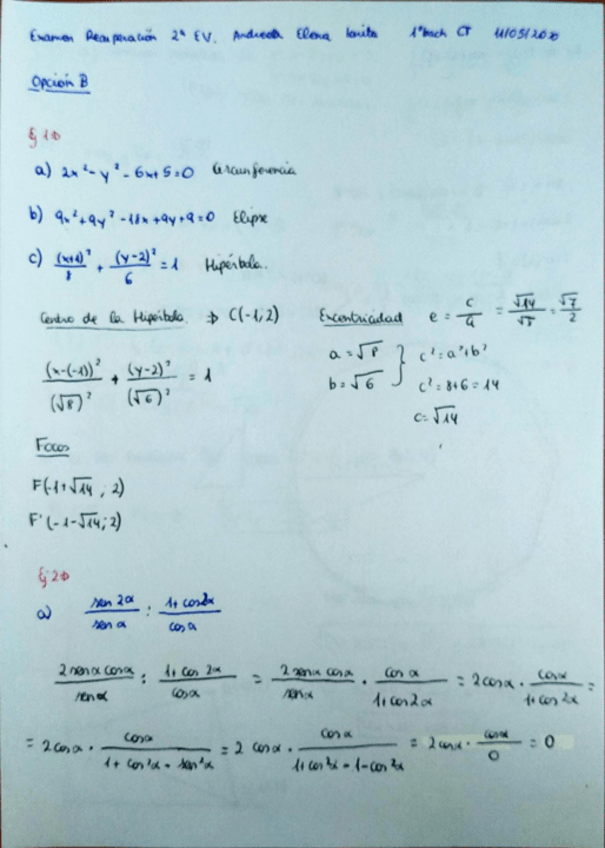 Examen Recuperación 2ª EV. Andreea Elena Ionita 1º bach CT 11/05/2020
Opción B
Ej 1º
a) 2x² - y² - 6x + 5 = 0 Circunferencia
b) 9x² + 9y² - 18x + 9y + 9 = 0 Elipse
c) (x+1)²/8 + (y-2)²/6 = 1 Hipérbola.
Centro de la Hipérbola. ⇒ C(-1, 2)
(x-(-1))²/(√8)² + (y-2)²/(√6)² = 1
Excentricidad e = c/a = √14/√8 = √7/2
a = √8 } c² = a² + b²
b = √6 c² = 8 + 6 = 14
c = √14
Focos
F(-1+√14 ; 2)
F'(-1-√14 ; 2)
Ej 2º
a) sen 2α/sen α : 1+cos2α/cos α
2 sen α cos α/sen α : 1+cos 2α/cos α = 2 sen α cos α/sen α · cos α/1+cos 2α = 2 cos α · cos α/1+cos 2α =
= 2 cos α · cos α/1+cos²α - sen²α = 2 cos α · cos α/1+cos²α - 1-cos²α = 2 cos α · cos α/0 = 0